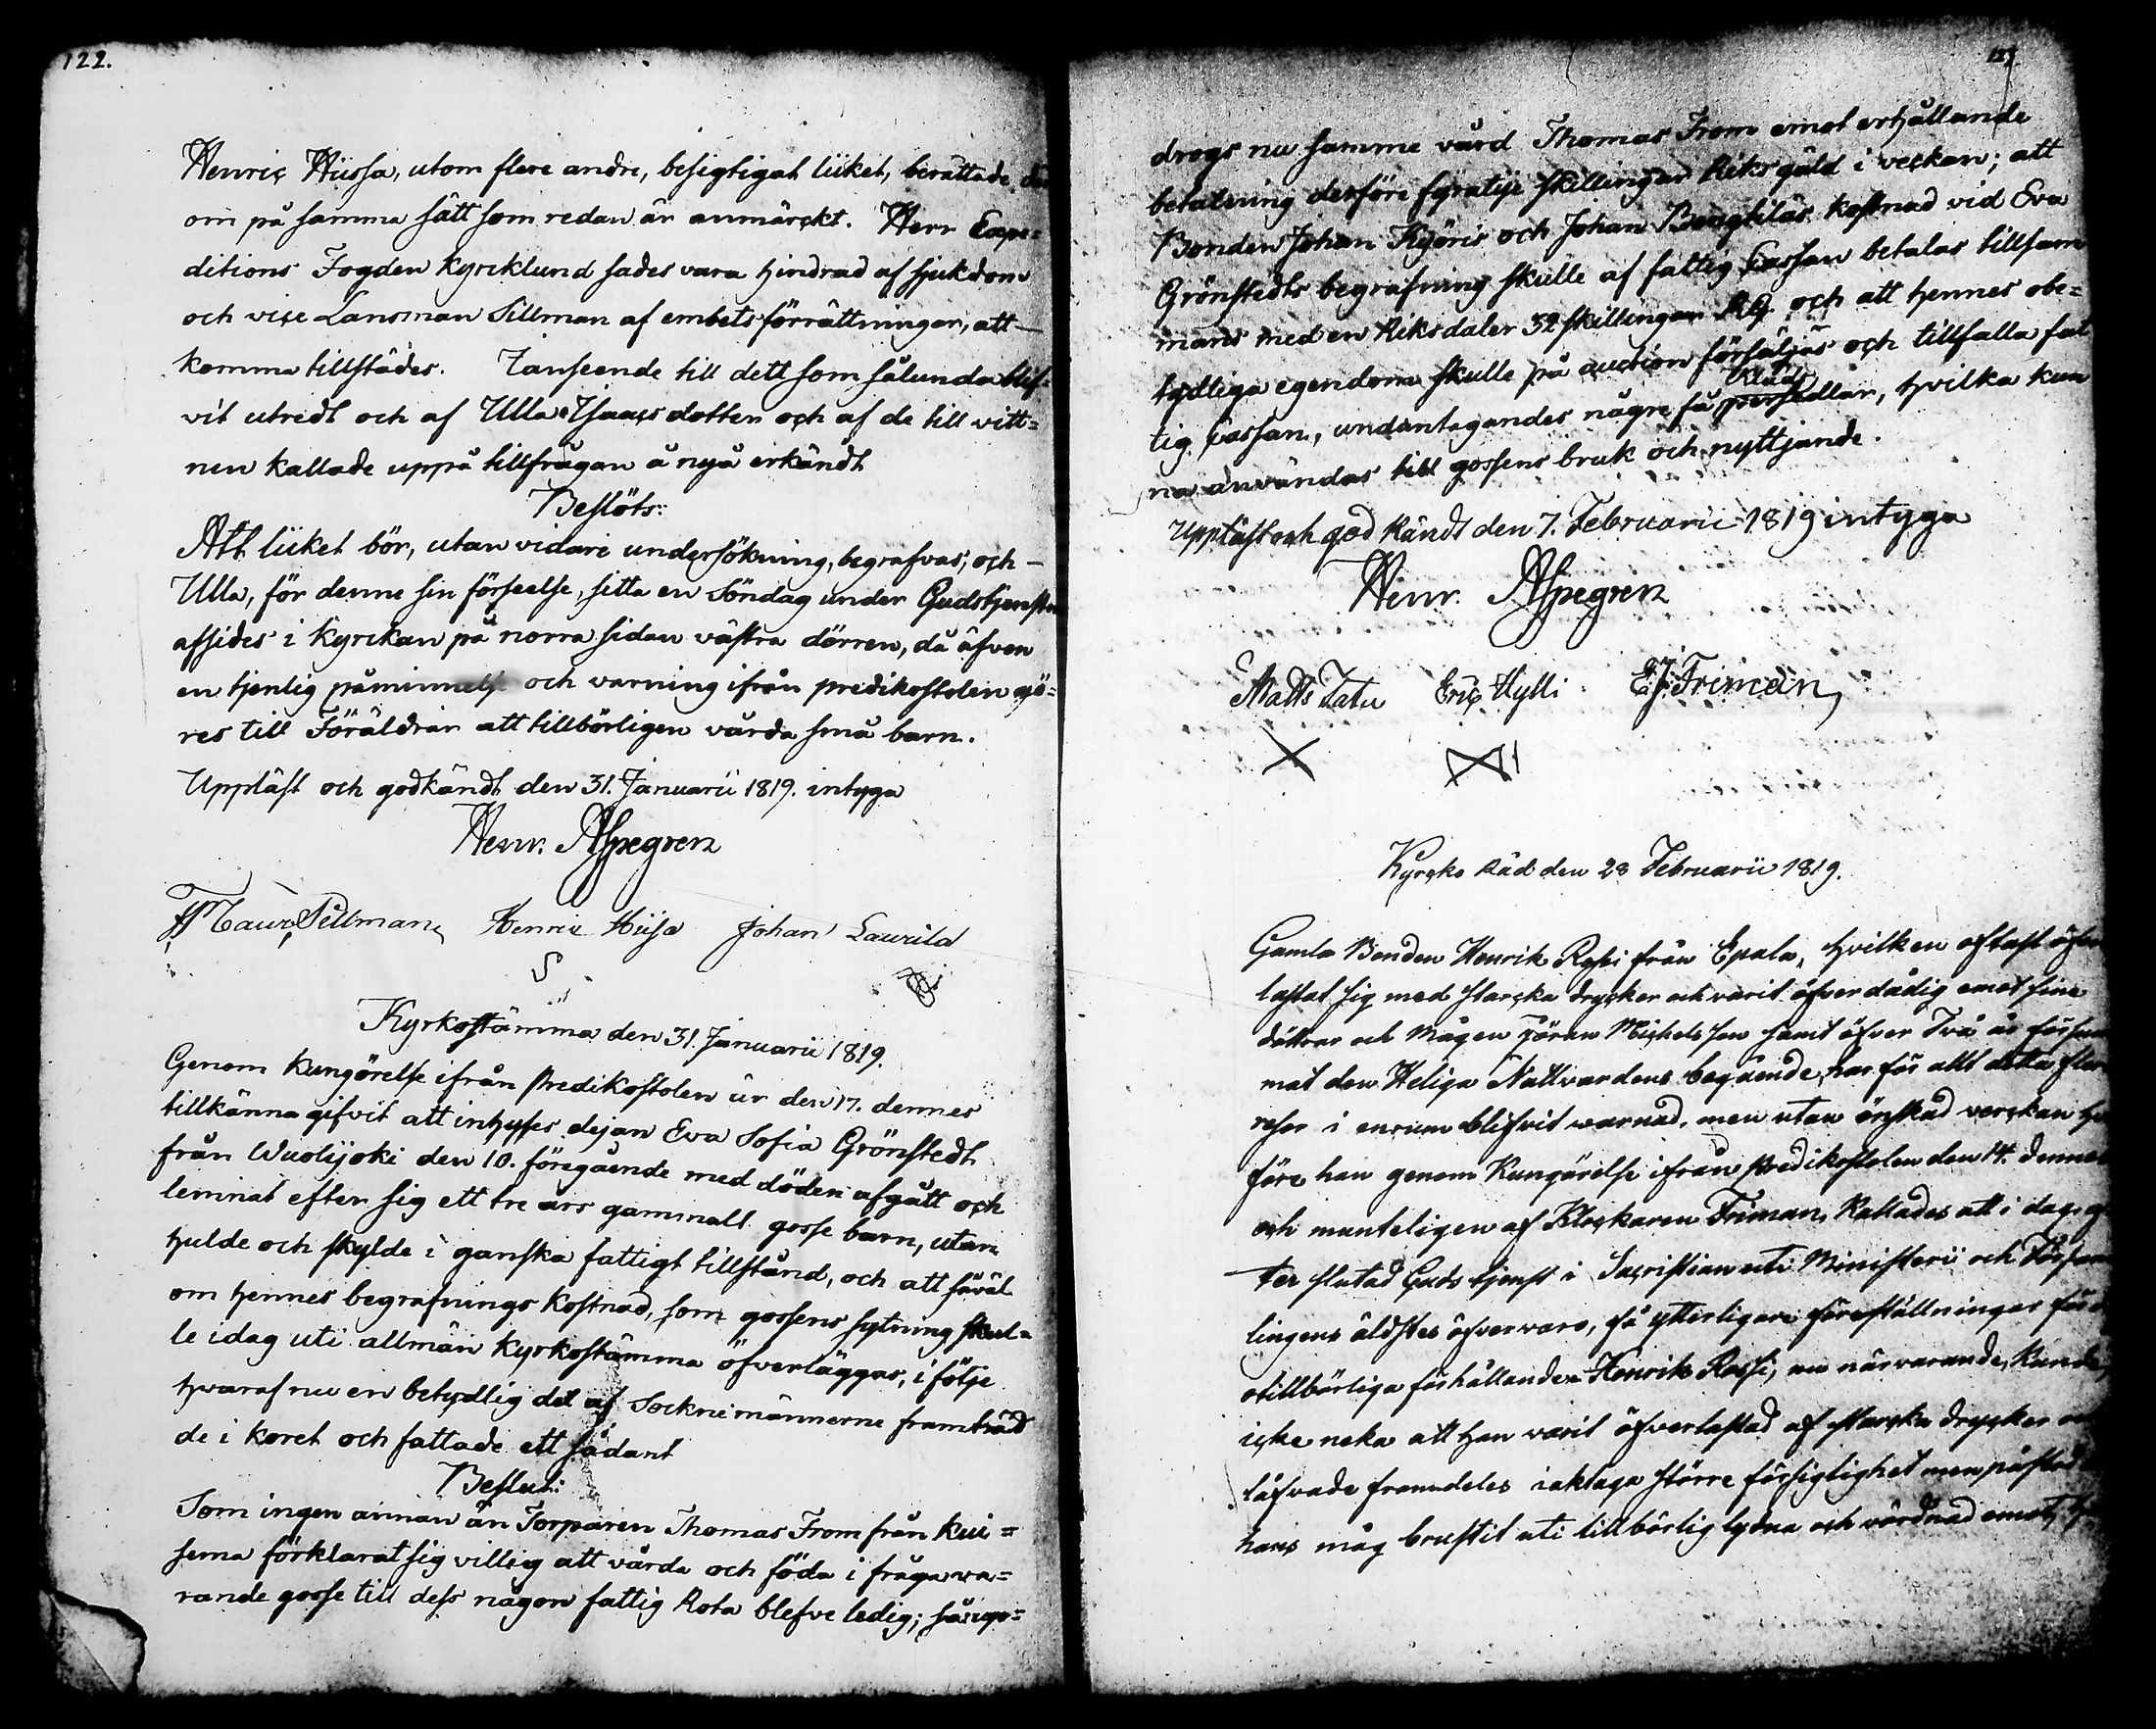 122.
Henric Hiissa, utom flere andre, besigtigat liiket, berättade, der
om på samma sätt som redan är anmärckt. Herr Expe=
ditions Fogden Kyrcklund sades vara hindrad af sjukdom
och vice Länsman Sillman af embets förrättningar, att
komma tillstädes. I anseende till dett som sålunda blif-
vit utredt och af Ulla Isaacs dotter och af de till vitt=
nen kallade uppå tillfrågan å nyå erkändt
Beslöts:
Att liiket bör, utan vidare undersökning, begrafvas; och
Ulla, för denne sin förseelse, sitta en Söndag under Gudstjensten
afsides i Kyrckan på norra sidan västra dörren, då äfven
en tjenlig påminnelse och varning ifrån predikostolen gjö=
res till Föräldrar att tillbörligen vårda små barn.
Uppläst och godkändt den 31. Januarii 1819. intyga
Henr. Aspegren
Sillman Henric Hiisa Johan Laurila
Kyrkostämma den 31. Januarii 1819.
Genom kungörelse ifrån Predikostolen är den 17. dennes
tillkänna gifvit att inhyses dejan Eva Sofia Grönstedt
från Wuolijoki den 10. föregående med döden afgått och
lemnat efter sig ett tre års gammalt gosse barn, utan
hulde och skylde i ganska fattigt tillstånd, och att såväl
om hennes begrafnings kostnad, som gossens sytning skul=
le idag uti allmän Kyrkostämma öfverläggas, i följe
hvaraf nu en betydlig del af Socknemännerne framträd
de i koret och fattade ett sådant
Beslut:
Som ingen annan än Torparen Thomas From från Kui=
sema förklarat sig villig att vårda och föda i fråga va=
rande gosse till dess någon fattig Rota blefve ledig; så up=
123
drogs nu samme vård Thomas From emot erhållande
betalning derföre fyratije skillingar Riksgäld i veckan; att
Bonden Johan Kyöris och Johan Bengtiläs kostnad vid Eva
Grönstedts begrafning skulle af fattig Cassan betalas tillsam
mans med en Riksdaler 32 skillingar RG. och att hennes obe=
tydliga egendom skulle på auction försäljas och tillfalla fat
tig Cassan, undantagandes några få Kläd persedlar, hvilka kun
na användas till gossens bruk och nyttjande.
Uppläst och god kändt den 7. Februarii 1819 intyga
Henr. Aspegren
Matts Tatu Eric Hylli E.J. Friman
Kyrcko Råd den 28 Februarii 1819.
Gamla Bonden Henrik Rossi från Epala, hvilken oftast öfver
lastat sig med starcka drycker och varit öfverdådig emot sine
döttrar och Mågen Jöran Michelsson samt öfver Två år försum
mat den Heliga Nattvardens begående, har för allt detta flere
resor i enrum blifvit warnad, men utan önskad verckan hvar
före han genom Kungörelse ifrån Predikostolen den 14. dennes
och munteligen af Klockaren Friman, Kallades att i dag, ef
ter slutad Guds tjenst i Sacristian uti Ministerii och Försam
lingens äldstes öfvervaro, få ytterligare föreställningar för
otillbörliga förhållanden. Henrik Rossi, nu närvarande, kunde
icke neka att han varit öfverlastad af starcka drycker och
låfvade framdeles iakttaga större försigtighet men påstod
hans måg brustit uti tillbörlig lydna och vördnad emot